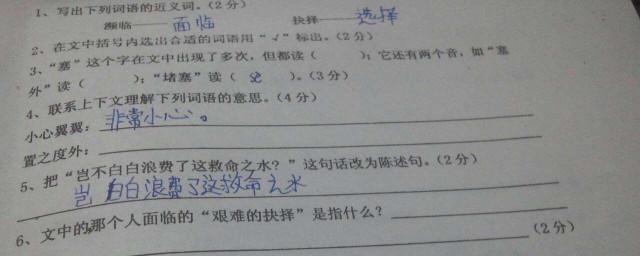 1、写出下列词语的近义词。(2分)
濒临——面临 抉择——选择
2、在文中括号内选出合适的词语用“√”标出。(2分)
3、“塞”这个字在文中出现了多次，但都读( )；它还有两个音，如“塞
外”读( )；“堵塞”读( )。(3分)
4、联系上下文理解下列词语的意思。(4分)
小心翼翼：非常小心。
置之度外：
5、把“岂不白白浪费了这救命之水？”这句话改为陈述句。(2分)
岂 白白浪费了这救命之水
6、文中的那个人面临的“艰难的抉择”是指什么？
(2分)